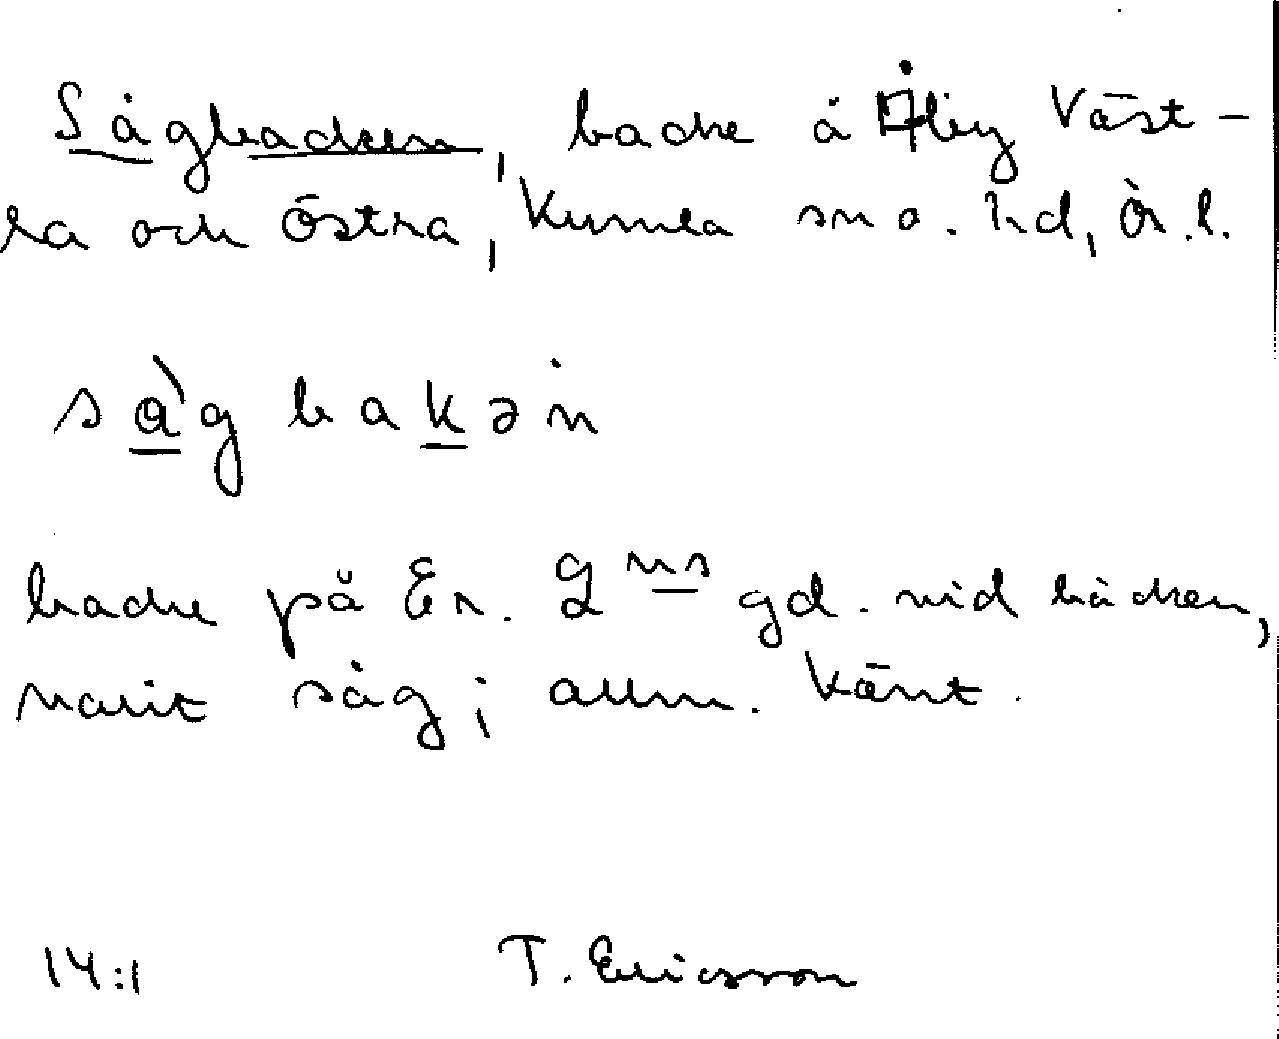 Sågbacken, backe å Åby Väst-
ra och Östra, Kumla sn o. hd, Ör. l.
såg bakən
backe på Er. G ns gd. vid bäcken,
varit såg; allm. känt.
14:1 T. Ericsson